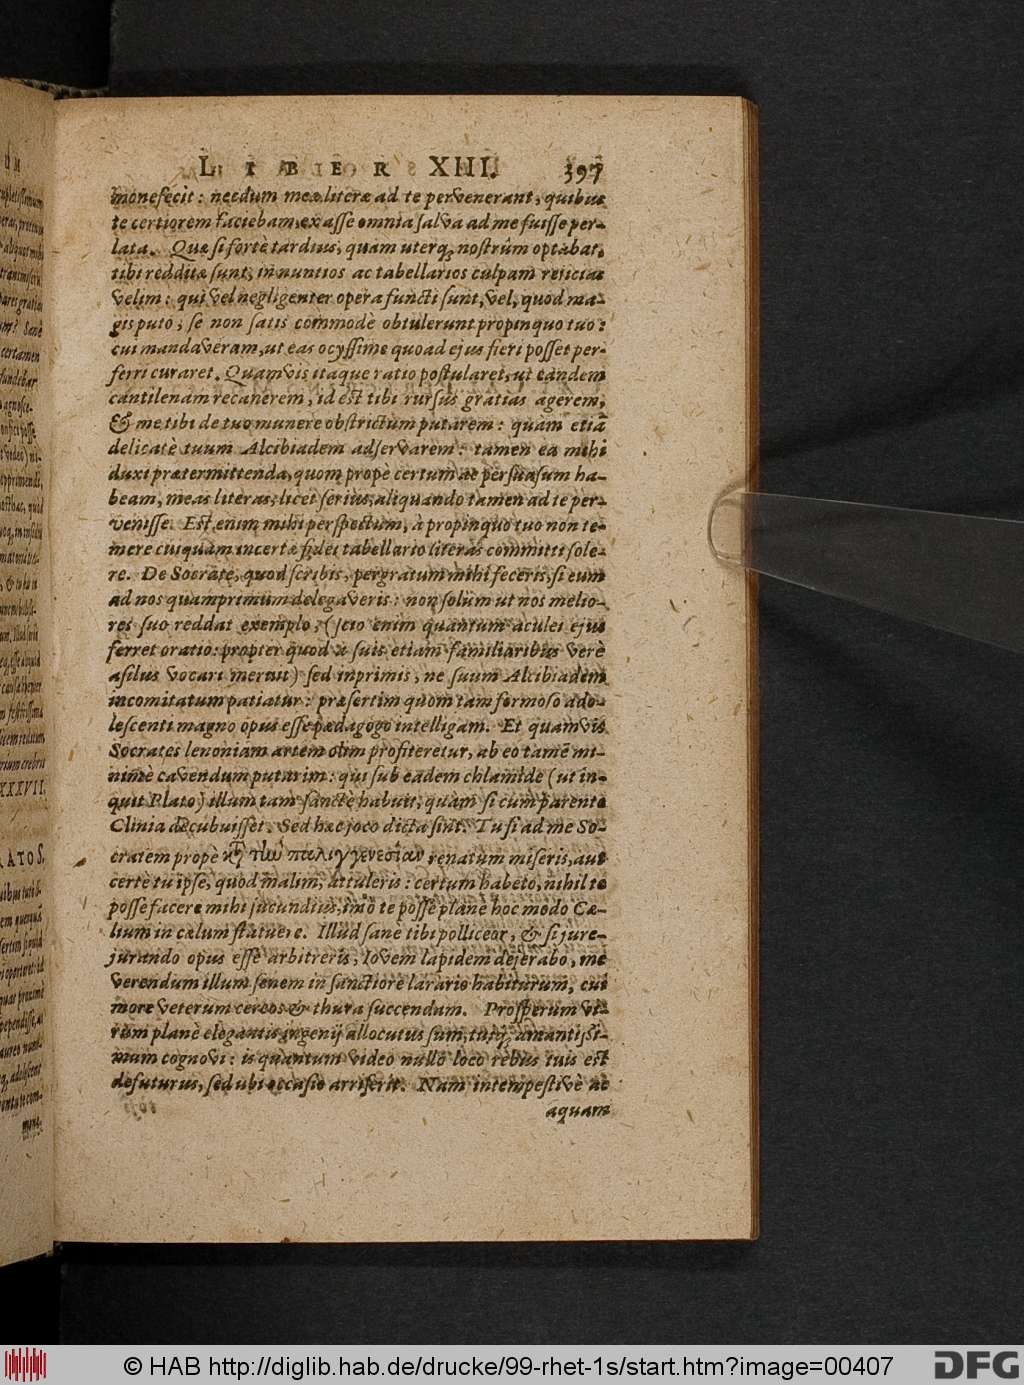 LIBER XIIII. 397
monefecit: necdum meæ literæ ad te pervenerant, quibus
te certiorem faciebam, ex asse omnia salva ad me fuisse per-
lata. Quæ si fortè tardius, quam uterq; nostrûm optabat,
tibi redditæ sunt, in nuntios ac tabellarios culpam rejicias
velim: qui vel negligenter opera functi sunt, vel, quod ma-
gis puto, se non satis commodè obtulerunt propinquo tuo:
cui mandaveram, ut eas ocyssime quoad ejus fieri posset per-
ferri curaret. Quamvis itaque ratio postularet, ut eandem
cantilenam recanerem, id est tibi rursus gratias agerem,
& me tibi de tuo munere obstrictum putarem: quam etiã
delicatè tuum Alcibiadem adservarem: tamen ea mihi
duxi prætermittenda, quom propè certum ac persuasum ha-
beam, meas literas, licet serius, aliquando tamen ad te per-
venisse. Est enim mihi perspectum, à propinquo tuo non te-
mere cuiquam incertæ fidei tabellario literas committi sole-
re. De Socrate, quod scribis, pergratum mihi feceris, si eum
ad nos quamprimum delegaveris: non solùm ut nos melio-
res suo reddat exemplo, (scio enim quantum aculei ejus
ferret oratio: propter quod & suis etiam familiaribus verè
asilus vocari meruit) sed inprimis, ne suum Alcibiadem
incomitatum patiatur: præsertim quòm tam formoso ado-
lescenti magno opus esse pædagogo intelligam. Et quamvis
Socrates lenoniam artem olim profiteretur, ab eo tamẽ mi-
nimè cavendum putarim: qui sub eadem chlamide (ut in-
quit Plato) illum tam sanctè habuit, quàm si cum parente
Clinia decubuisset. Sed hæc joco dicta sint. Tu si ad me So-
cratem propè κτ̃ τῶν παλιγγενεσίαν renatum miseris, aut
certè tu ipse, quod malim, attuleris: certum habeto, nihil te
posse facere mihi jucundius, imò te posse planè hoc modo Cæ-
lium in cælum statuere. Illud sanè tibi polliceor, & si jure-
jurando opus esse arbitreris, Iovem lapidem dejerabo, me
verendum illum senem in sanctiore larario habiturum, cui
more veterum cereos & thura succendam. Prosperum vi-
rum planè elegantis ingenij allocutus sum, tuíq; amantissi-
mum cognovi: is quantum video nullo loco rebus tuis est
defuturus, sed ubi occasio arriserit. Nam intempestivè ac
aquam
© HAB http://diglib.hab.de/drucke/99-rhet-1s/start.htm?image=00407
DFG